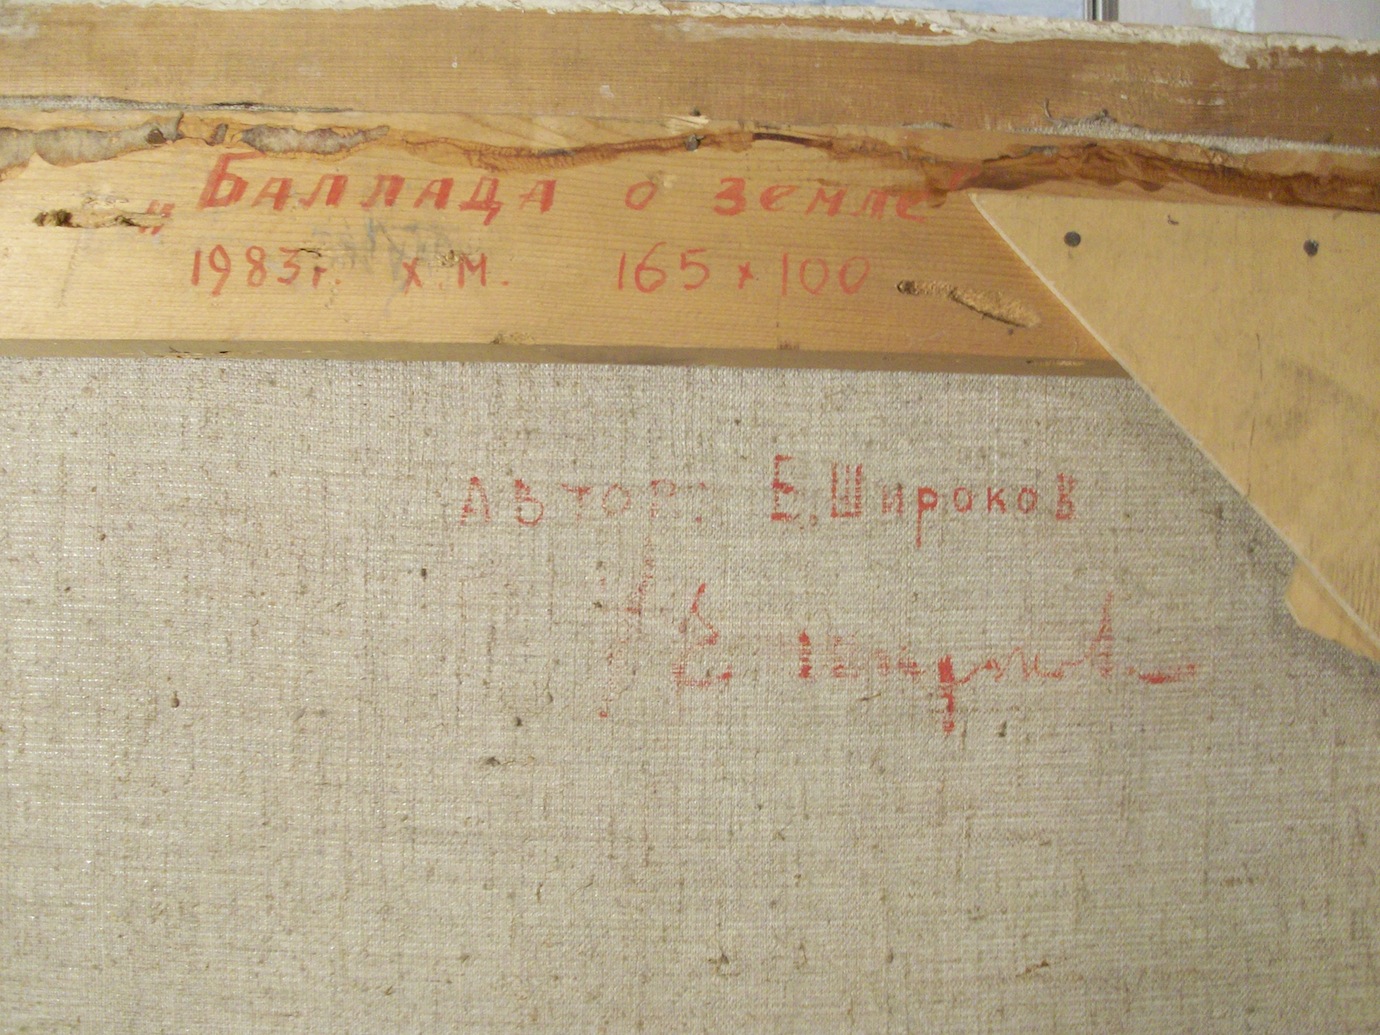 „Баллада о земле"
1983г. х.м. 165 х 100
Автор: Е. Широков
Е. Широков